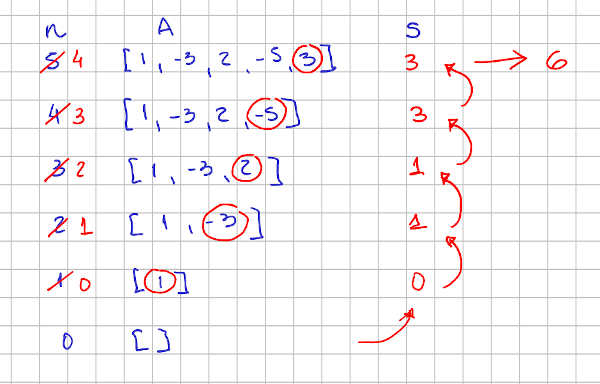 n A S
5 4 [1, -3, 2, -5, 3] 3 → 6
4 3 [1, -3, 2, -5] 3
3 2 [1, -3, 2] 1
2 1 [1, -3] 1
1 0 [1] 0
0 []